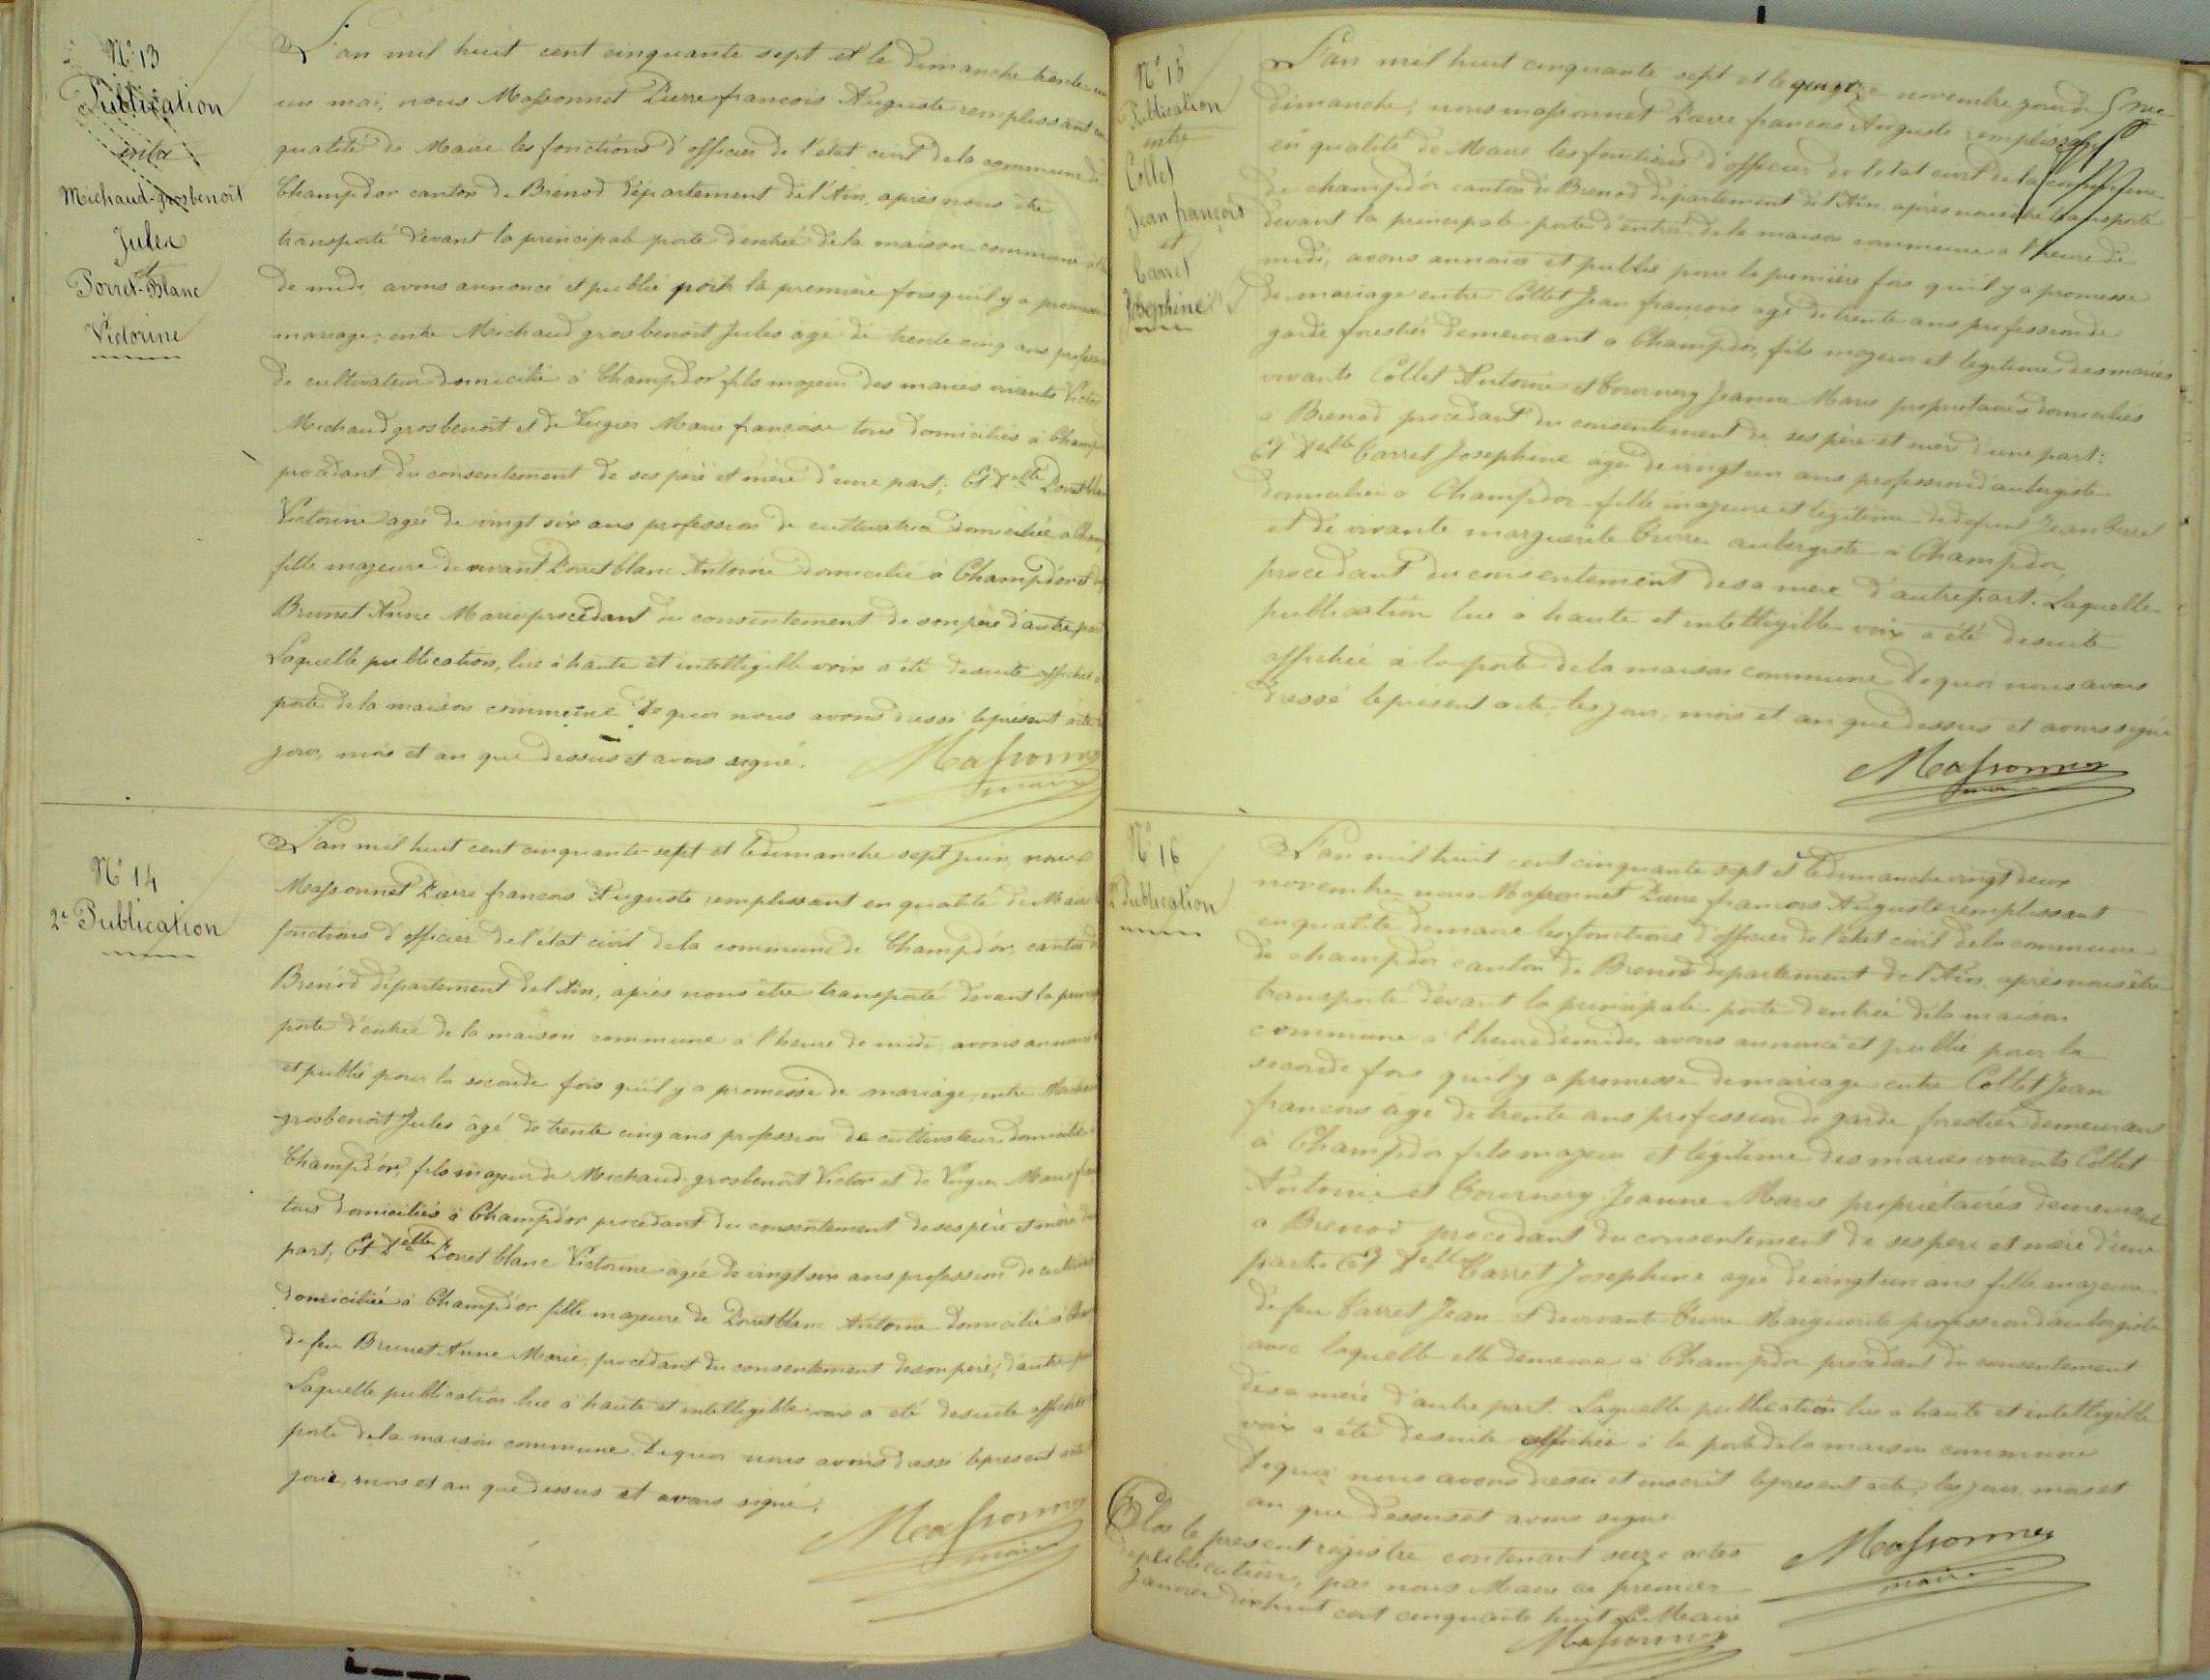 N° 13
Publication
entre
Michaud-grosbenoit
Jules
et
Porret-Blanc
Victorine
L'an mil huit cent cinquante sept et le dimanche trente
un mai, nous Massonnet Pierre françois Auguste remplissant en
qualité de Maire les fonctions d'officier de l'état civil de la commune de
Champdor canton de Brénod département de l'Ain, après nous être
transporté devant la principale porte d'entrée de la maison commune
de midi avons annoncé et publié pour la première fois qu'il y a promesse
mariage, entre Michaud grosbenoit Jules agé de trente cinq ans profession
de cultivateur domicilié à Champdor fils majeur des mariés vivants Victor
Michaud grosbenoit et de Vugier Marie francoise tous domiciliés à Champ
procédant du consentement de ses père et mère d'une part; Et Delle Porret blanc
Victorine agée de vingt six ans profession de cultivatrice domiciliée à Champ
fille majeure de vivant Porret blanc Antoine domicilié à Champdor et
Brunet Anne Marie procédant du consentement de son père d'autre part
Laquelle publication, lue à haute et intelligible voix a été desuite affichée
porte de la maison commune De quoi nous avons dressé le présent acte
jour, mois et an que dessus et avons signé.
Massonnet
maire
N° 14
2e Publication
L'an mil huit cent cinquante-sept et le dimanche sept juin, nous
Massonnet Pierre francois Auguste remplissant en qualité de Maire
fonctions d'officier de l'état civil de la commune de Champdor, canton de
Brénod département de l'Ain, après nous être transporté devant la
porte d'entrée de la maison commune a l'heure de midi, avons annoncé
et publié pour la seconde fois qu'il y a promesse de mariage, entre
grosbenoit Jules âgé de trente cinq ans profession de cultivateur domicilié
Champdor, fils majeur de Michaud-grosbenoit Victor et de Vugier Marie
tous domiciliés à Champdor procédant du consentement de ses père et mère
part, Et Delle Porret blanc Victorine agée de vingt six ans profession de
domiciliée à Champdor fille majeure de Porret blanc Antoine domicilié à
de feu Brunet Anne Marie, procédant du consentement de son père, d'autre part
Laquelle publication lue à haute et intelligible voix a été desuite affichée
porte de la maison commune. De quoi nous avons dressé le présent acte
jour, mois et an que dessus et avons signé.
Massonnet
maire
N° 15
Publication
entre
Collet
Jean françois
et
Carret
Josephine
L'an mil huit cinquante sept et le quinze novembre jour de
dimanche, nous massonnet Pierre francois Auguste remplissant
en qualité de Maire les fonctions d'officier de l'état civil de la commune
de champdor canton de Brenod département de l'Ain, après nous être transporté
devant la principale porte d'entrée de la maison commune a l'heure de
midi, avons annoncé et publié pour la première fois qu'il y a promesse
de mariage entre Collet Jean françois agé de trente ans profession de
garde forestier demeurant a Champdor, fils majeur et légitime des mariés
vivants Collet Antoine et Tournery Jeanne Marie propriétaires domiciliés
à Brenod procédant du consentement de ses père et mère d'une part:
Et Delle Carret Josephine agé de vingt un ans profession d'aubergiste
domiciliée a Champdor fille majeure et légitime de defunt Jean Carret
et de vivante marguerite aubergiste à Champdor,
procédant du consentement de sa mère d'autre part. Laquelle
publication lue à haute et intelligible voix a été desuite
affichée à la porte de la maison commune De quoi nous avons
dressé le présent acte, les jour, mois et an que dessus et avons signé
Massonnet
maire
N° 16
2e Publication
L'an mil huit cent cinquante sept et le dimanche vingt deux
novembre nous Massonnet Pierre francois Auguste remplissant
en qualité de maire les fonctions d'officier de l'état civil de la commune
de champdor canton de Brenod département de l'Ain, après nous être
transporté devant la principale porte d'entrée de la maison
commune à l'heure de midi, avons annoncé et publié pour la
seconde fois qu'il y a promesse de mariage entre Collet Jean
francois âgé de trente ans profession de garde forestier demeurant
à Champdor fils majeur et légitime des mariés vivants Collet
Antoine et Tournery Jeanne Marie propriétaires demeurant
a Brenod procédant du consentement de ses père et mère d'une
part. Et Delle Carret Josephine agée de vingt un ans fille majeure
de feu Carret Jean et de vivante Marguerite profession d'aubergiste
avec laquelle elle demeure à Champdor procédant du consentement
de sa mère d'autre part. Laquelle publication lue à haute et intelligible
voix a été desuite affichée à la porte de la maison commune
De quoi nous avons dressé et inscrit le présent acte, les jour, mois et
an que dessus et avons signé.
Massonnet
maire
Clos le present registre contenant seize actes
de publication, par nous Maire ce premier
Janvier dix huit cent cinquante huit Le Maire
Massonnet